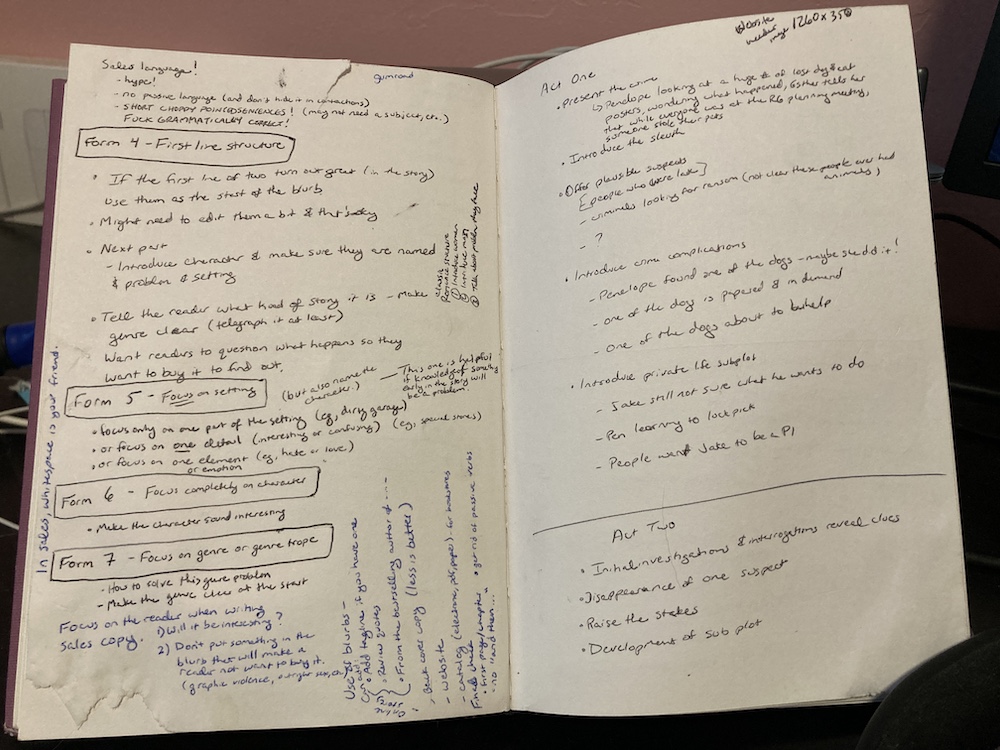 Sales language!
- hype!
- no passive language (and don't hide it in contractions)
- SHORT CHOPPY POINTED SENTENCES! (may not need a subject, etc..)
FUCK GRAMMATICALLY CORRECT!
gumroad
Form 4 - First line structure
• If the first line or two turn out great (in the story)
use them as the start of the blurb
• Might need to edit them a bit & that's okay
• Next part
- Introduce character & make sure they are named
& problem & setting
• Tell the reader what kind of story it is - Make
genre clear (telegraph it at least)
Want readers to question what happens so they
want to buy it to find out.
Classic
Romance structure
① Introduce women
② Introduce man
③ Tell about problem they have
Form 5 - Focus on setting
(but also name the
character.)
— This one is helpful
if knowledge of something
early in the story will
be a problem.
• focus only on one part of the setting (eg, dirty garage)
• or focus on one detail (interesting or confusing) (eg, special stones)
• or focus on one element (eg, hate or love)
or emotion
Form 6 - Focus completely on character
• Make the character sound interesting
Form 7 - Focus on genre or genre trope
- How to solve this genre problem
- Make the genre clear at the start
Focus on the reader when writing
sales copy.
1) Will it be interesting?
2) Don't put something in the
blurb that will make a
reader not want to buy it.
(graphic violence, outright sex, etc)
In sales, whitespace is your friend.
Uses for blurbs -
• Add tagline if you have one
• Review quotes
• From the bestselling author of ---
- Back cover copy (less is better)
- website
- catalog (electronic, pdf, paper) - for bookstores
Final check
• first page/chapter
• no "and then..."
• get rid of passive verbs
Website
header
image 1260 x 350
Act One
• Present the crime
↳ Penelope looking at a huge # of lost dog & cat
posters, wondering what happened, Esther tells her
that while everyone was at the RG planning meeting,
someone stole their pets
• Introduce the sleuth
• Offer plausible suspects
[people who were late]
- criminals looking for ransom (not clear these people ever had
animals)
- ?
• Introduce crime complications
- Penelope found one of the dogs - maybe she did it!
- one of the dogs is papered & in demand
- One of the dogs about to whelp
• Introduce private life subplot
- Jake still not sure what he wants to do
- Pen learning to lockpick
- People want Jake to be a PI
Act Two
• Initial investigations & interrogations reveal clues
• Disappearance of one suspect
• Raise the stakes
• Development of sub plot